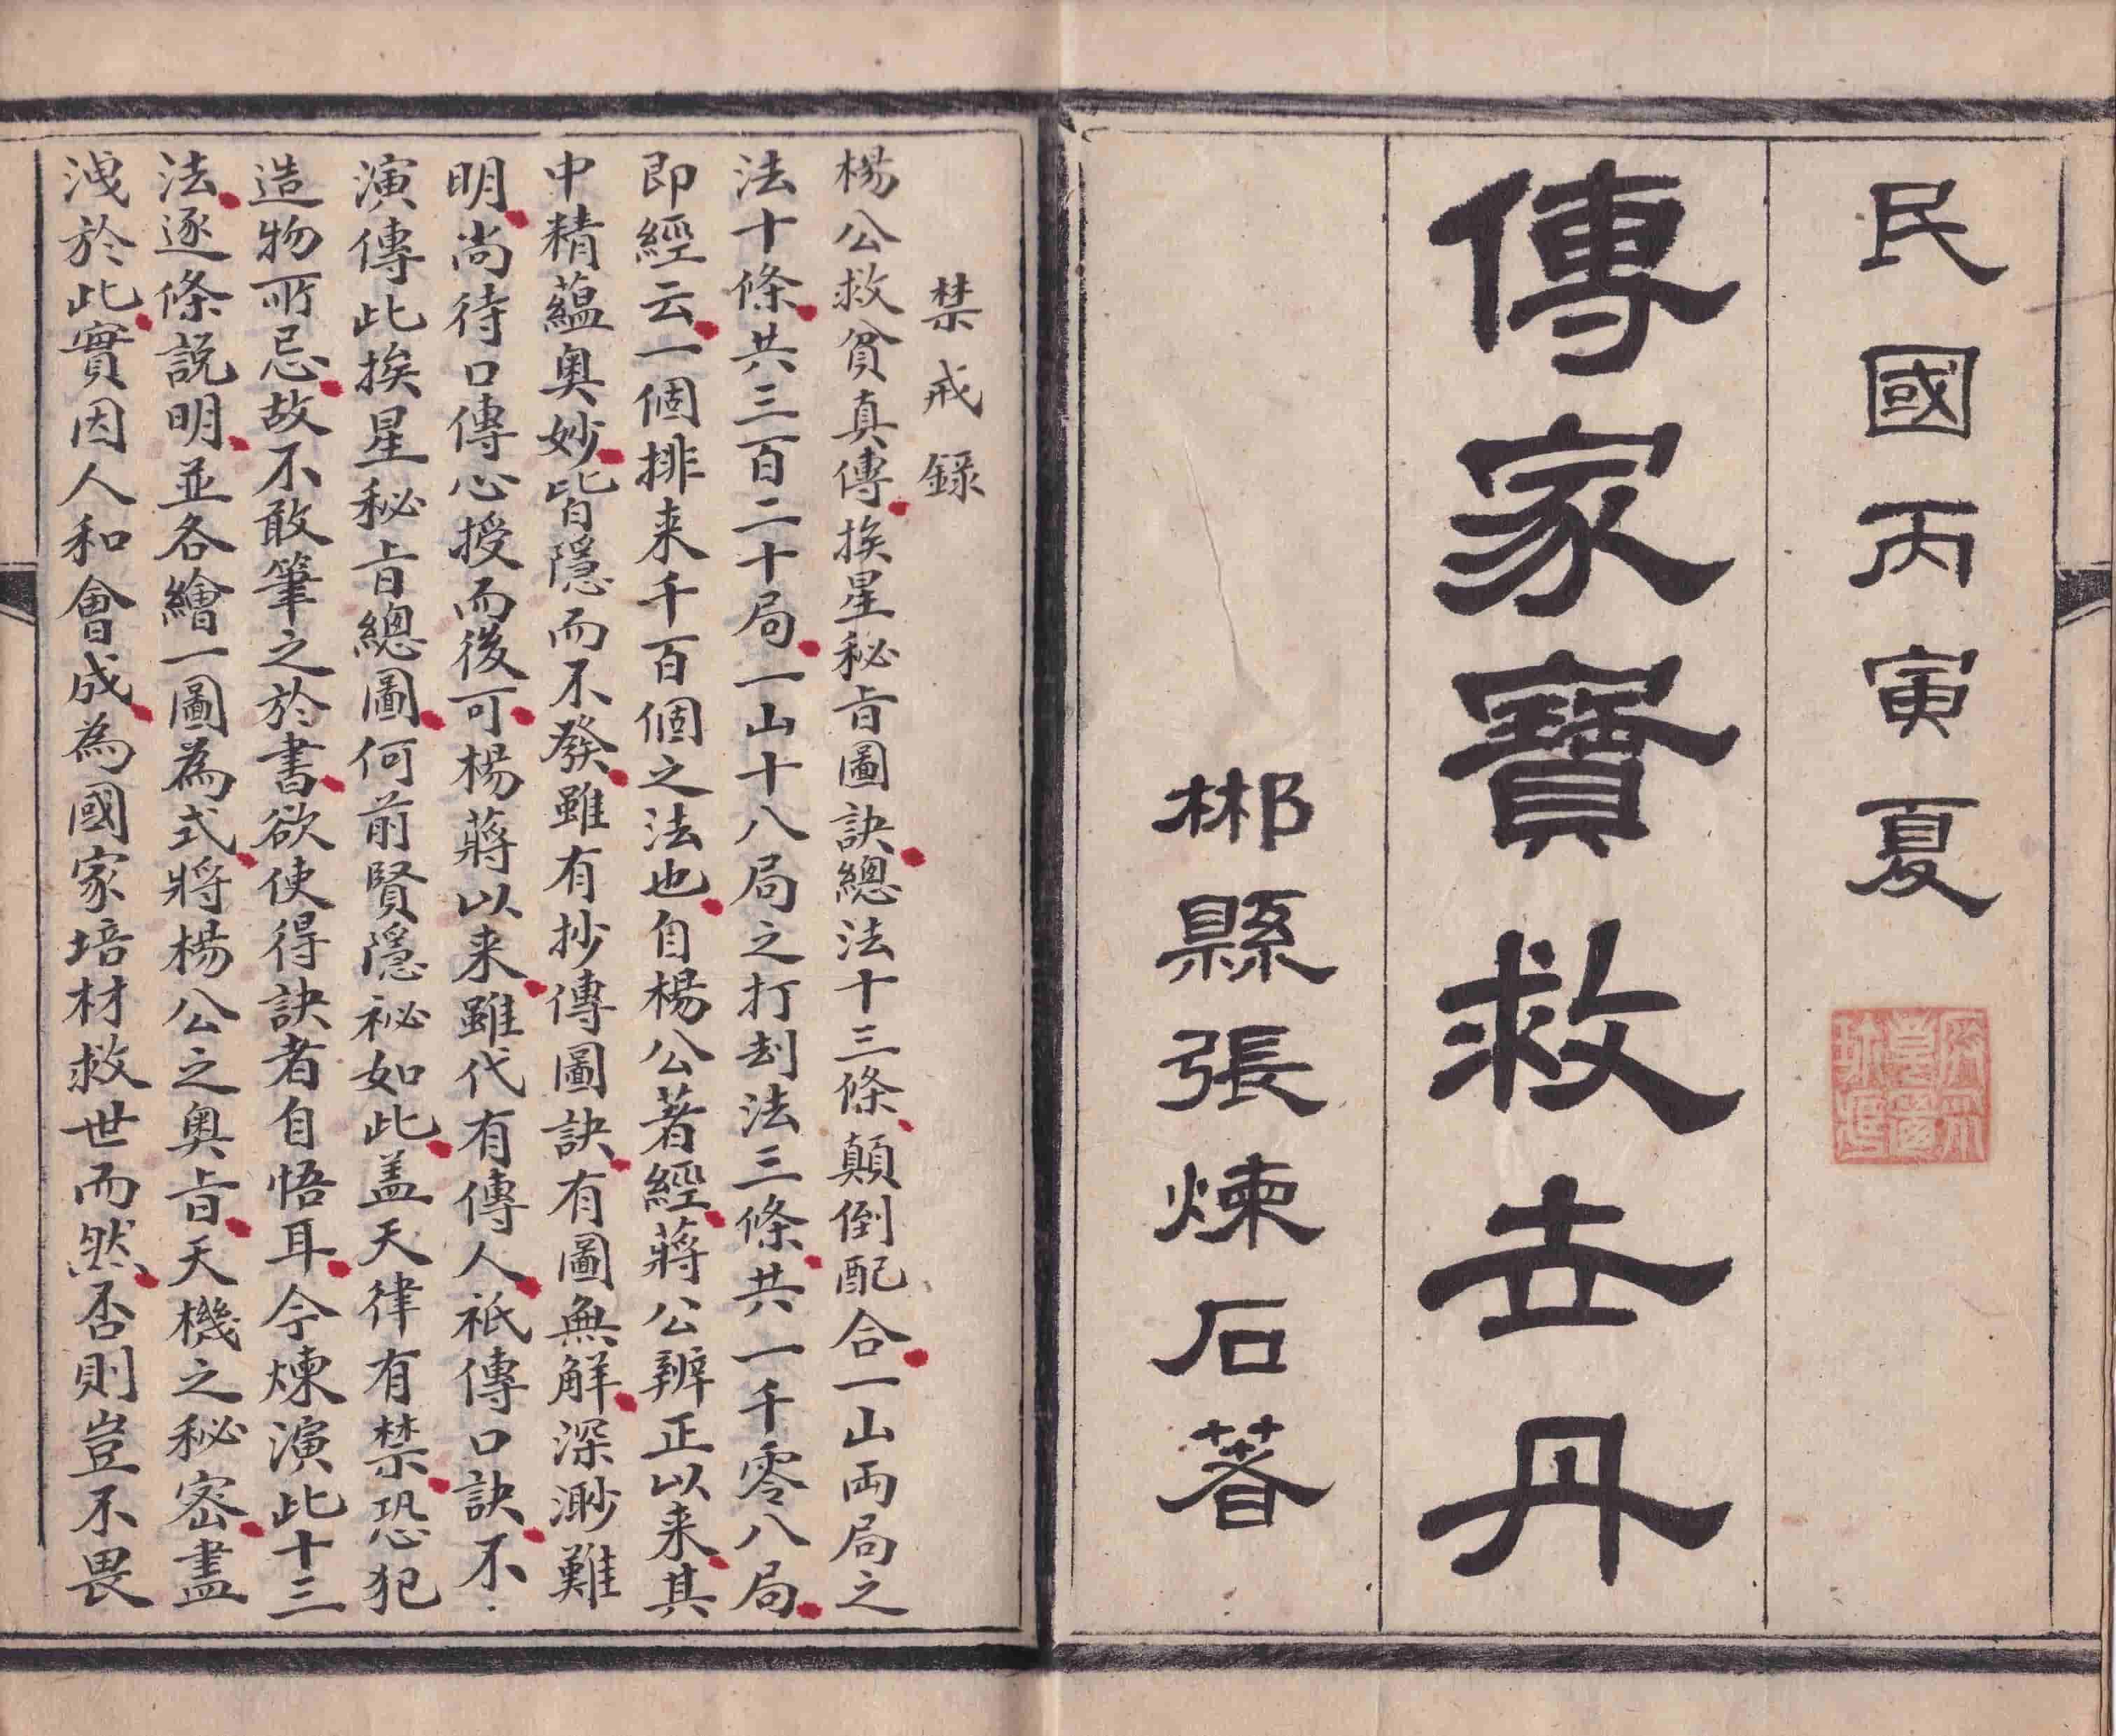 民國丙寅夏
傳家寶救世丹
郴縣張煉石著
禁戒録
楊公救貧真傳挨星秘旨圖訣總法十三條顛倒配合一山両局之
法十條共三百二十局一山十八局之打刦法三條共一千零八局
即經云一個排来千百個之法也自楊公著經蔣公辨正以来其
中精蘊奥妙皆隱而不發雖有抄傳圖訣有圖無解深渺難
明尚待口傳心授而後可楊蔣以来雖代有傳人祇傳口訣不
演傳此挨星秘旨總圖何前賢隱祕如此盖天律有禁恐犯
造物所忌故不敢筆之於書欲使得訣者自悟耳今煉演此十三
法逐條説明並各繪一圖為式將楊公之奥旨天機之秘密盡
洩於此實因人和會成為國家培材救世而然否則豈不畏